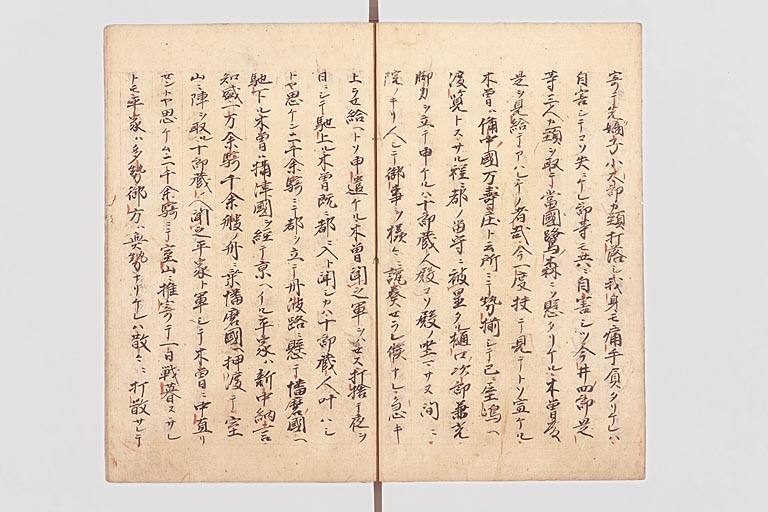 寄テ先嫡子小太郎カ頸打落し我身モ痛手負タリケレハ
自害シテコソ失ニケレ郎等モ共ニ自害シツ今井四郎是
等三人カ頸ヲ取テ當國鷺森ニソ懸タリケル木曽殿
是ヲ見給テアハレケノ者哉今一度扶テ見テトソ宣ケル
木曽ハ備中國万壽庄ト云所ニテ勢揃シテ已ニ屋嶋ヘ
渡覧トスサル程ニ都ノ留守ニ被置タル樋口次郎兼光
脚力ヲ立テ申ケルハ十郎蔵人殿コソ殿ノ坐ニサヌ間ニ
院ノキリ人シテ御事ヲ様々ニ讒奏セラレ候ナレ急キ
上ラせ給ヘトソ申遣ケル木曽聞之軍ヲハせス打捨テ夜ヲ
日ニシテ馳上ル木曽既ニ都ニ入ト聞シカハ十郎蔵人叶ハシ
トヤ思ケン二千余騎ニテ都ヲ立テ丹波路ニ懸テ播磨國ヘ
馳下ル木曽ハ攝津國ヲ經テ京ヘイル平家ハ新中納言
知盛一万余騎千余艘ノ舟ニ乗播磨國ヘ押渡テ室
山ニ陣ヲ取ル十郎蔵人聞之平家ト軍シテ木曽ニ中直リ
せントヤ思ケム二千余騎ニテ室山ニ推寄テ一日戦暮スサレ
トモ平家ハ多勢御方ハ無勢ナリケレハ散々ニ打散サレテ